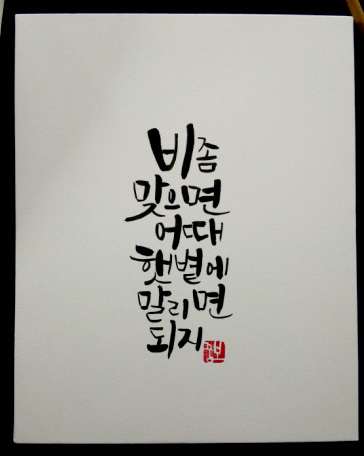 비좀
맞으면
어때
햇볕에
말리면
되지